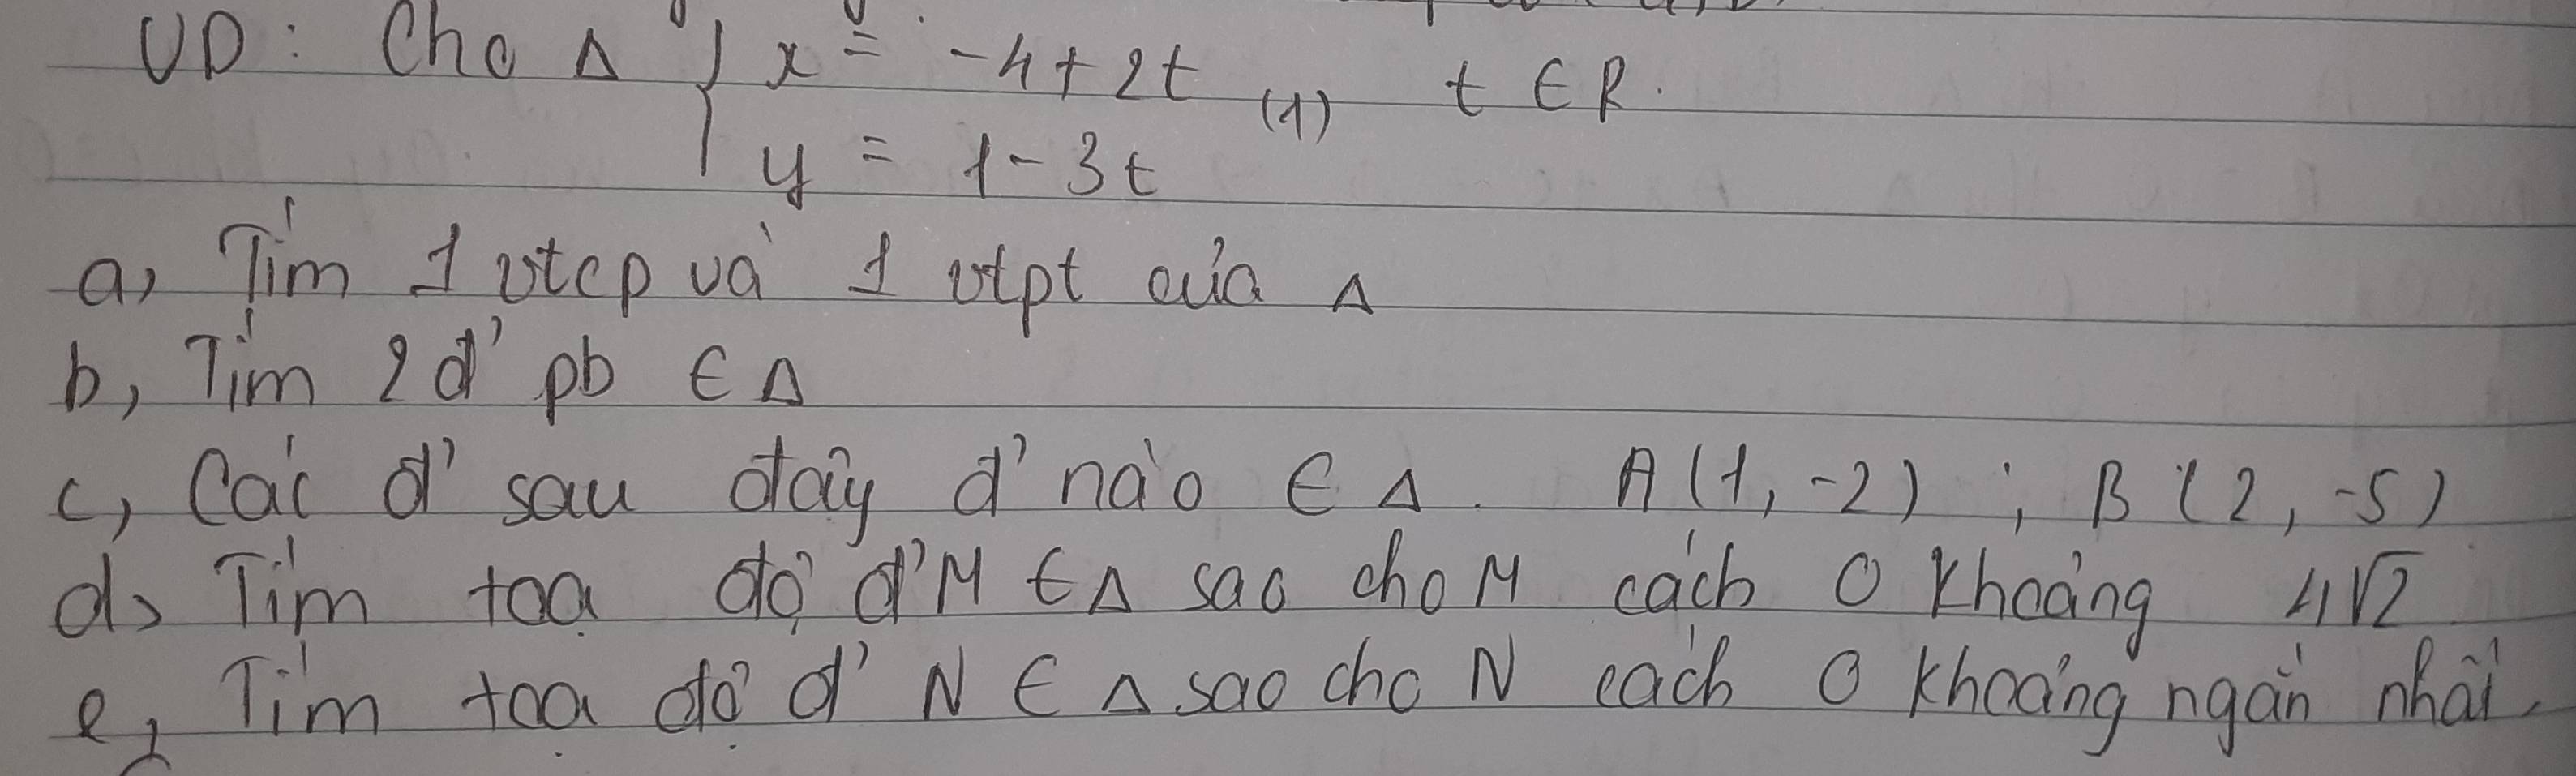 VD: Cho Δ { x = -4 + 2t (1) t ∈ R.
y = 1 - 3t
a, Tìm 1 vtcp và 1 vtpt của Δ
b, Tìm 2 đ' pb ∈ Δ
c, Các đ' sau đây đ' nào ∈ Δ. A(1, -2) ; B(2, -5)
d, Tìm toạ độ đ' M ∈ Δ sao cho M cách O khoảng 4√2
e, Tìm toạ độ đ' N ∈ Δ sao cho N cách O khoảng ngắn nhất.